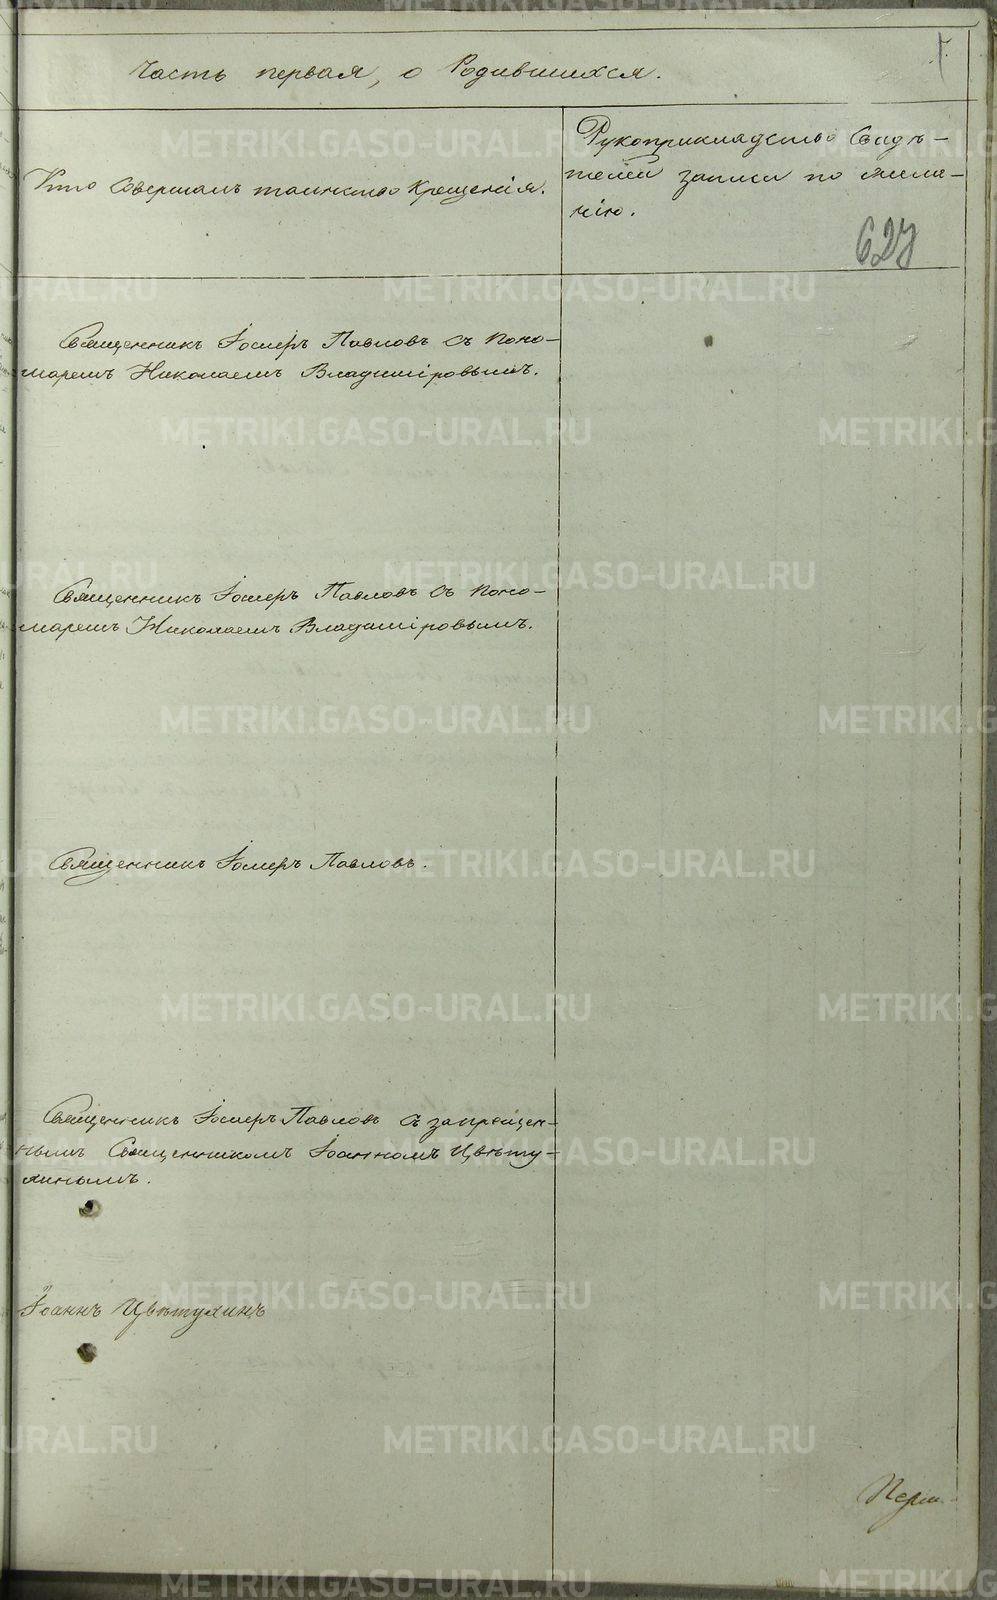 Часть первая, о Родившихся.
Кто Совершалъ таинство Крещенія.
Рукоприкладство Свидѣ-
телей записи по жела-
нію.
627
Священникъ Іосифъ Павловъ съ Поно-
маремъ Николаемъ Владиміровымъ.
Священникъ Іосифъ Павловъ съ Поно-
маремъ Николаемъ Владиміровымъ.
Священникъ Іосифъ Павловъ.
Священникъ Іосифъ Павловъ съ запрещен-
нымъ Священникомъ Іоанномъ Цвѣту-
хинымъ.
Іоаннъ Цвѣтухинъ
METRIKI.GASO-URAL.RU